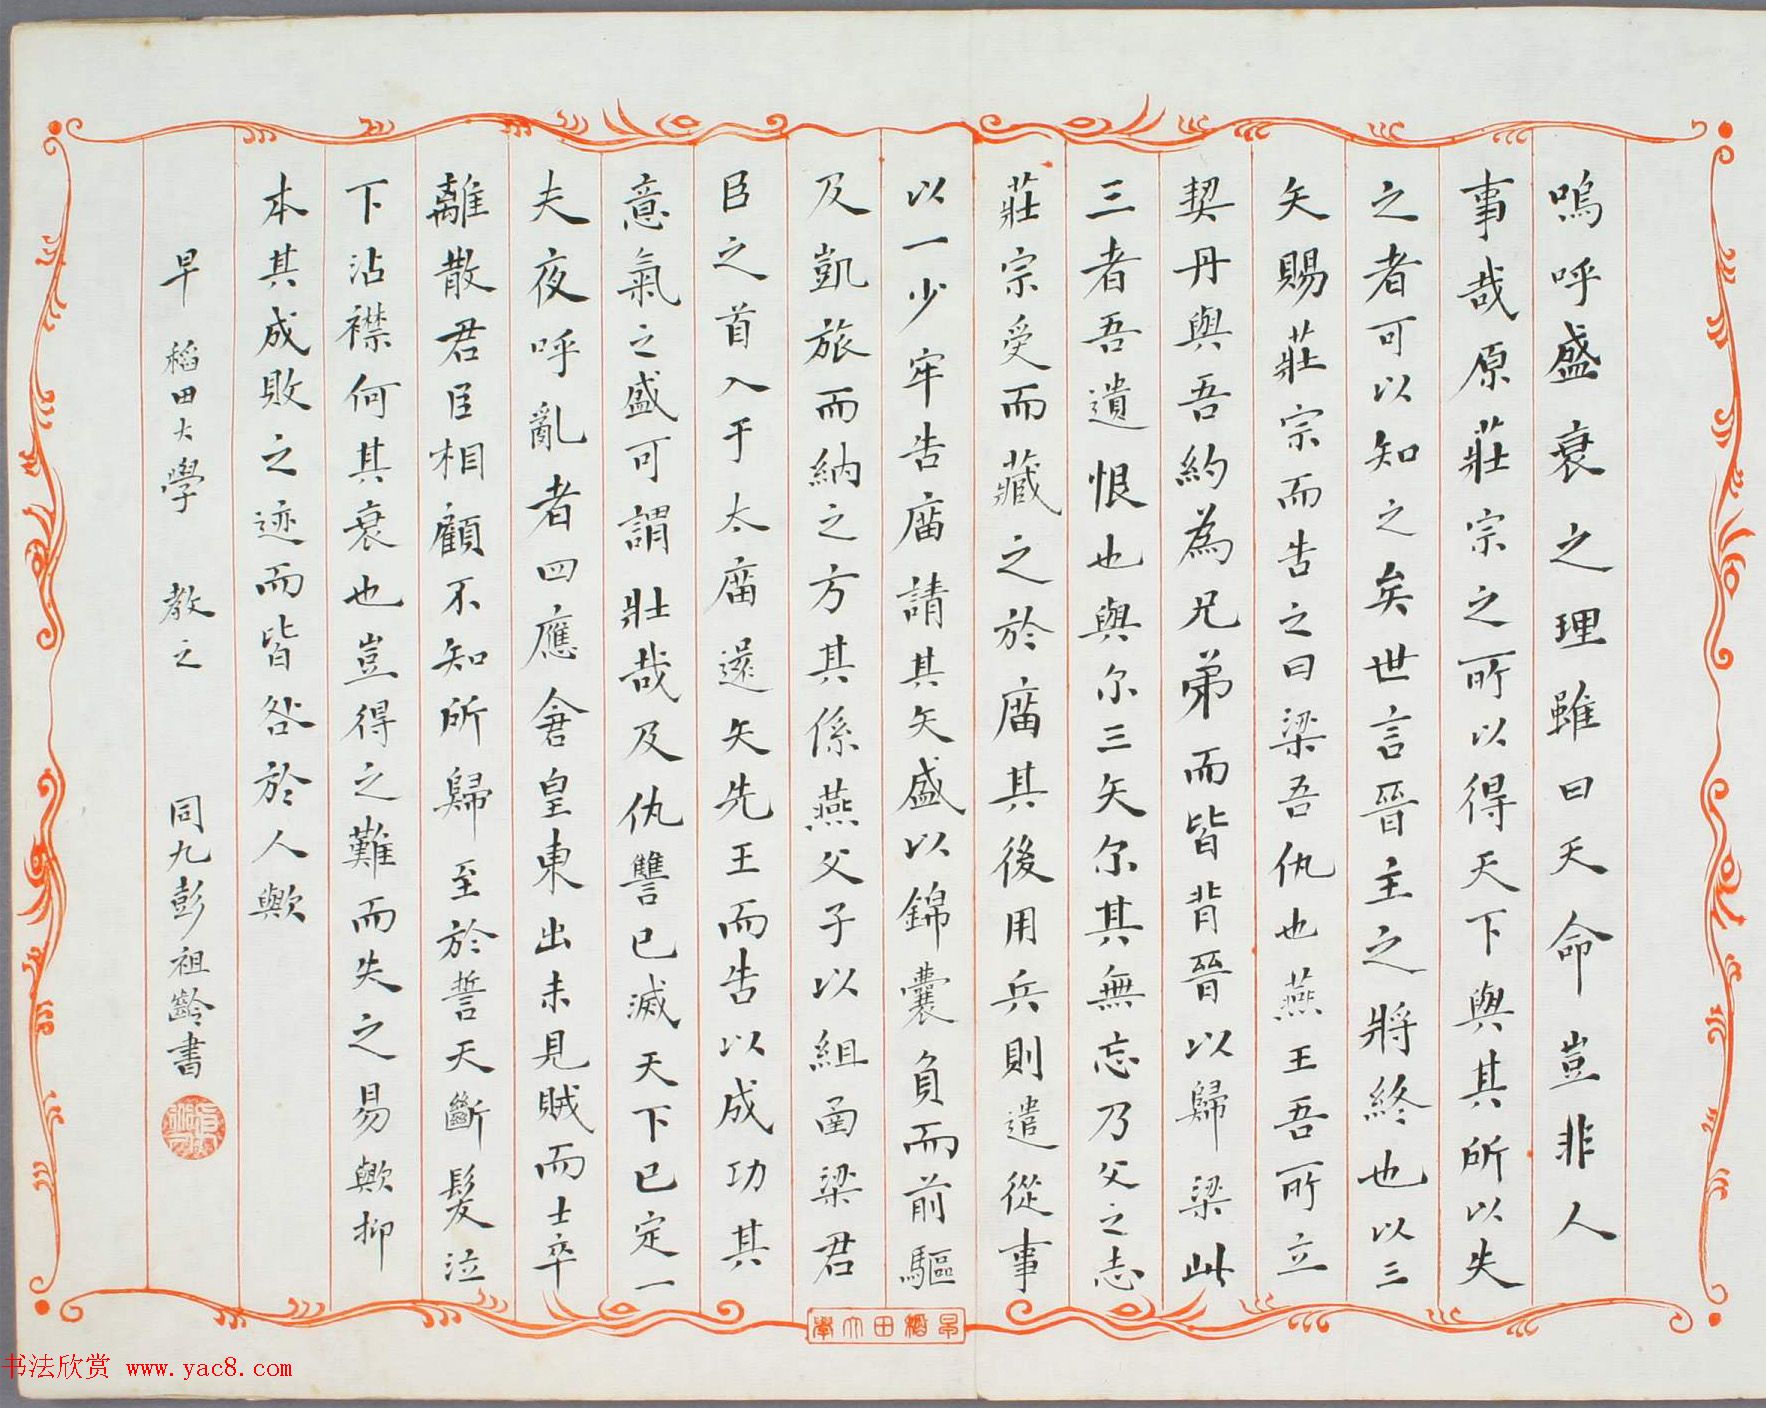 嗚呼盛衰之理雖曰天命豈非人
事哉原莊宗之所以得天下與其所以失
之者可以知之矣世言晉主之將終也以三
矢賜莊宗而告之曰梁吾仇也燕王吾所立
契丹與吾約為兄弟而皆背晉以歸梁此
三者吾遺恨也與尔三矢尔其無忘乃父之志
莊宗受而藏之於庿其後用兵則遣從事
以一少牢告庿請其矢盛以錦囊負而前驅
及凱旅而納之方其係燕父子以組函梁君
臣之首入于太庿還矢先王而告以成功其
意氣之盛可謂壯哉及仇讐已滅天下已定一
夫夜呼亂者四應倉皇東出未見賊而士卒
離散君臣相顧不知所歸至於誓天斷髮泣
下沾襟何其衰也豈得之難而失之易歟抑
本其成敗之迹而皆咎於人歟
早稻田大學 教之 同九彭祖齡書
早稻田大學
书法欣赏 www.yac8.com